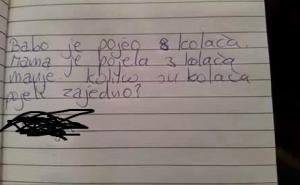 Babo je pojeo 8 kolača.
Mama je pojela 3 kolača
manje. koliko su kolača
pojeli zajedno?